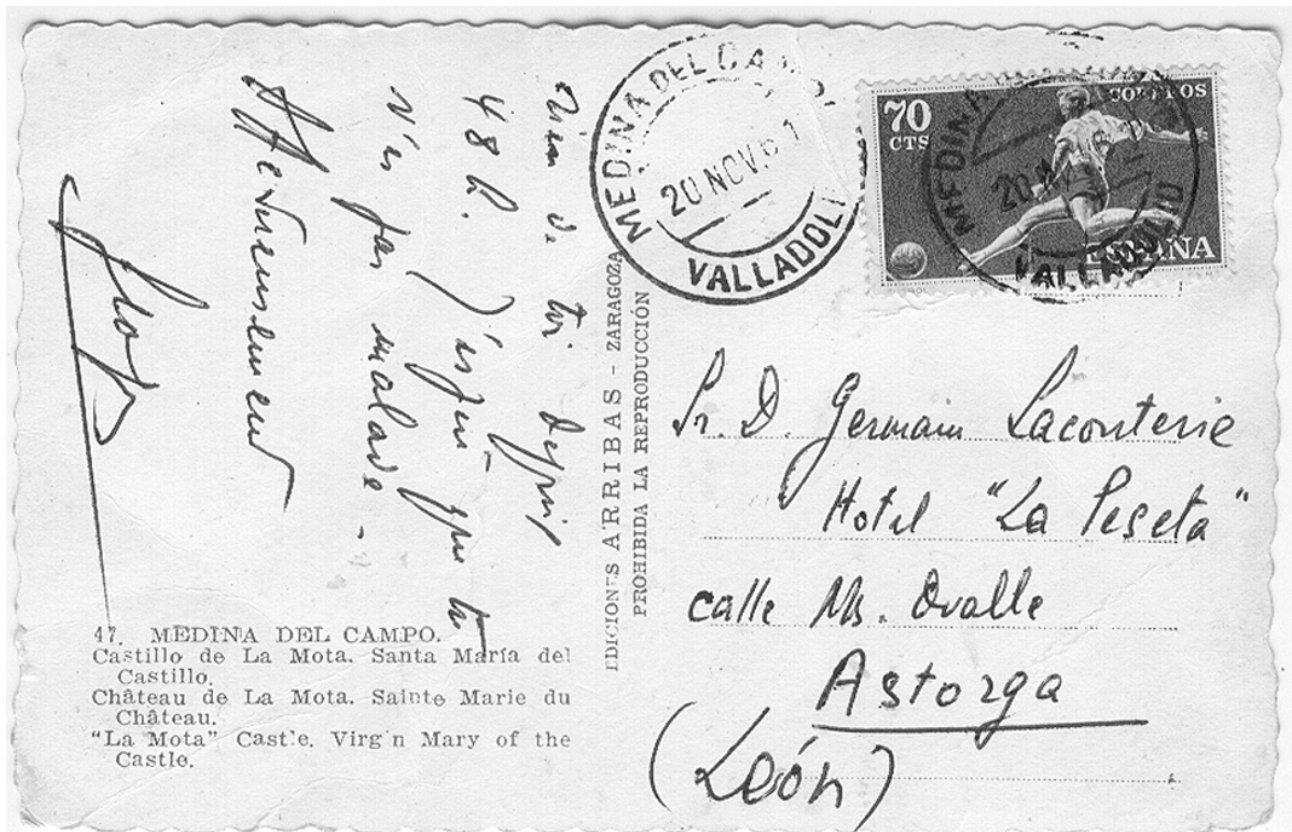 Rien de toi depuis
48 h. J'espère que tu
n'es pas malade -
Affectueusement
47. MEDINA DEL CAMPO.
Castillo de La Mota. Santa María del
Castillo.
Château de La Mota. Sainte Marie du
Château.
"La Mota" Castle. Virgin Mary of the
Castle.
EDICIONES ARRIBAS - ZARAGOZA
PROHIBIDA LA REPRODUCCIÓN
MEDINA DEL CAMPO
20 NOV. 61
VALLADOLI
70
CTS
CORREOS
ESPAÑA
MEDINA
20 N
VALLADOLID
Sr. D. Germain Laconterie
Hotel "La Peseta"
calle Ms. Ovalle
Astorga
(León)